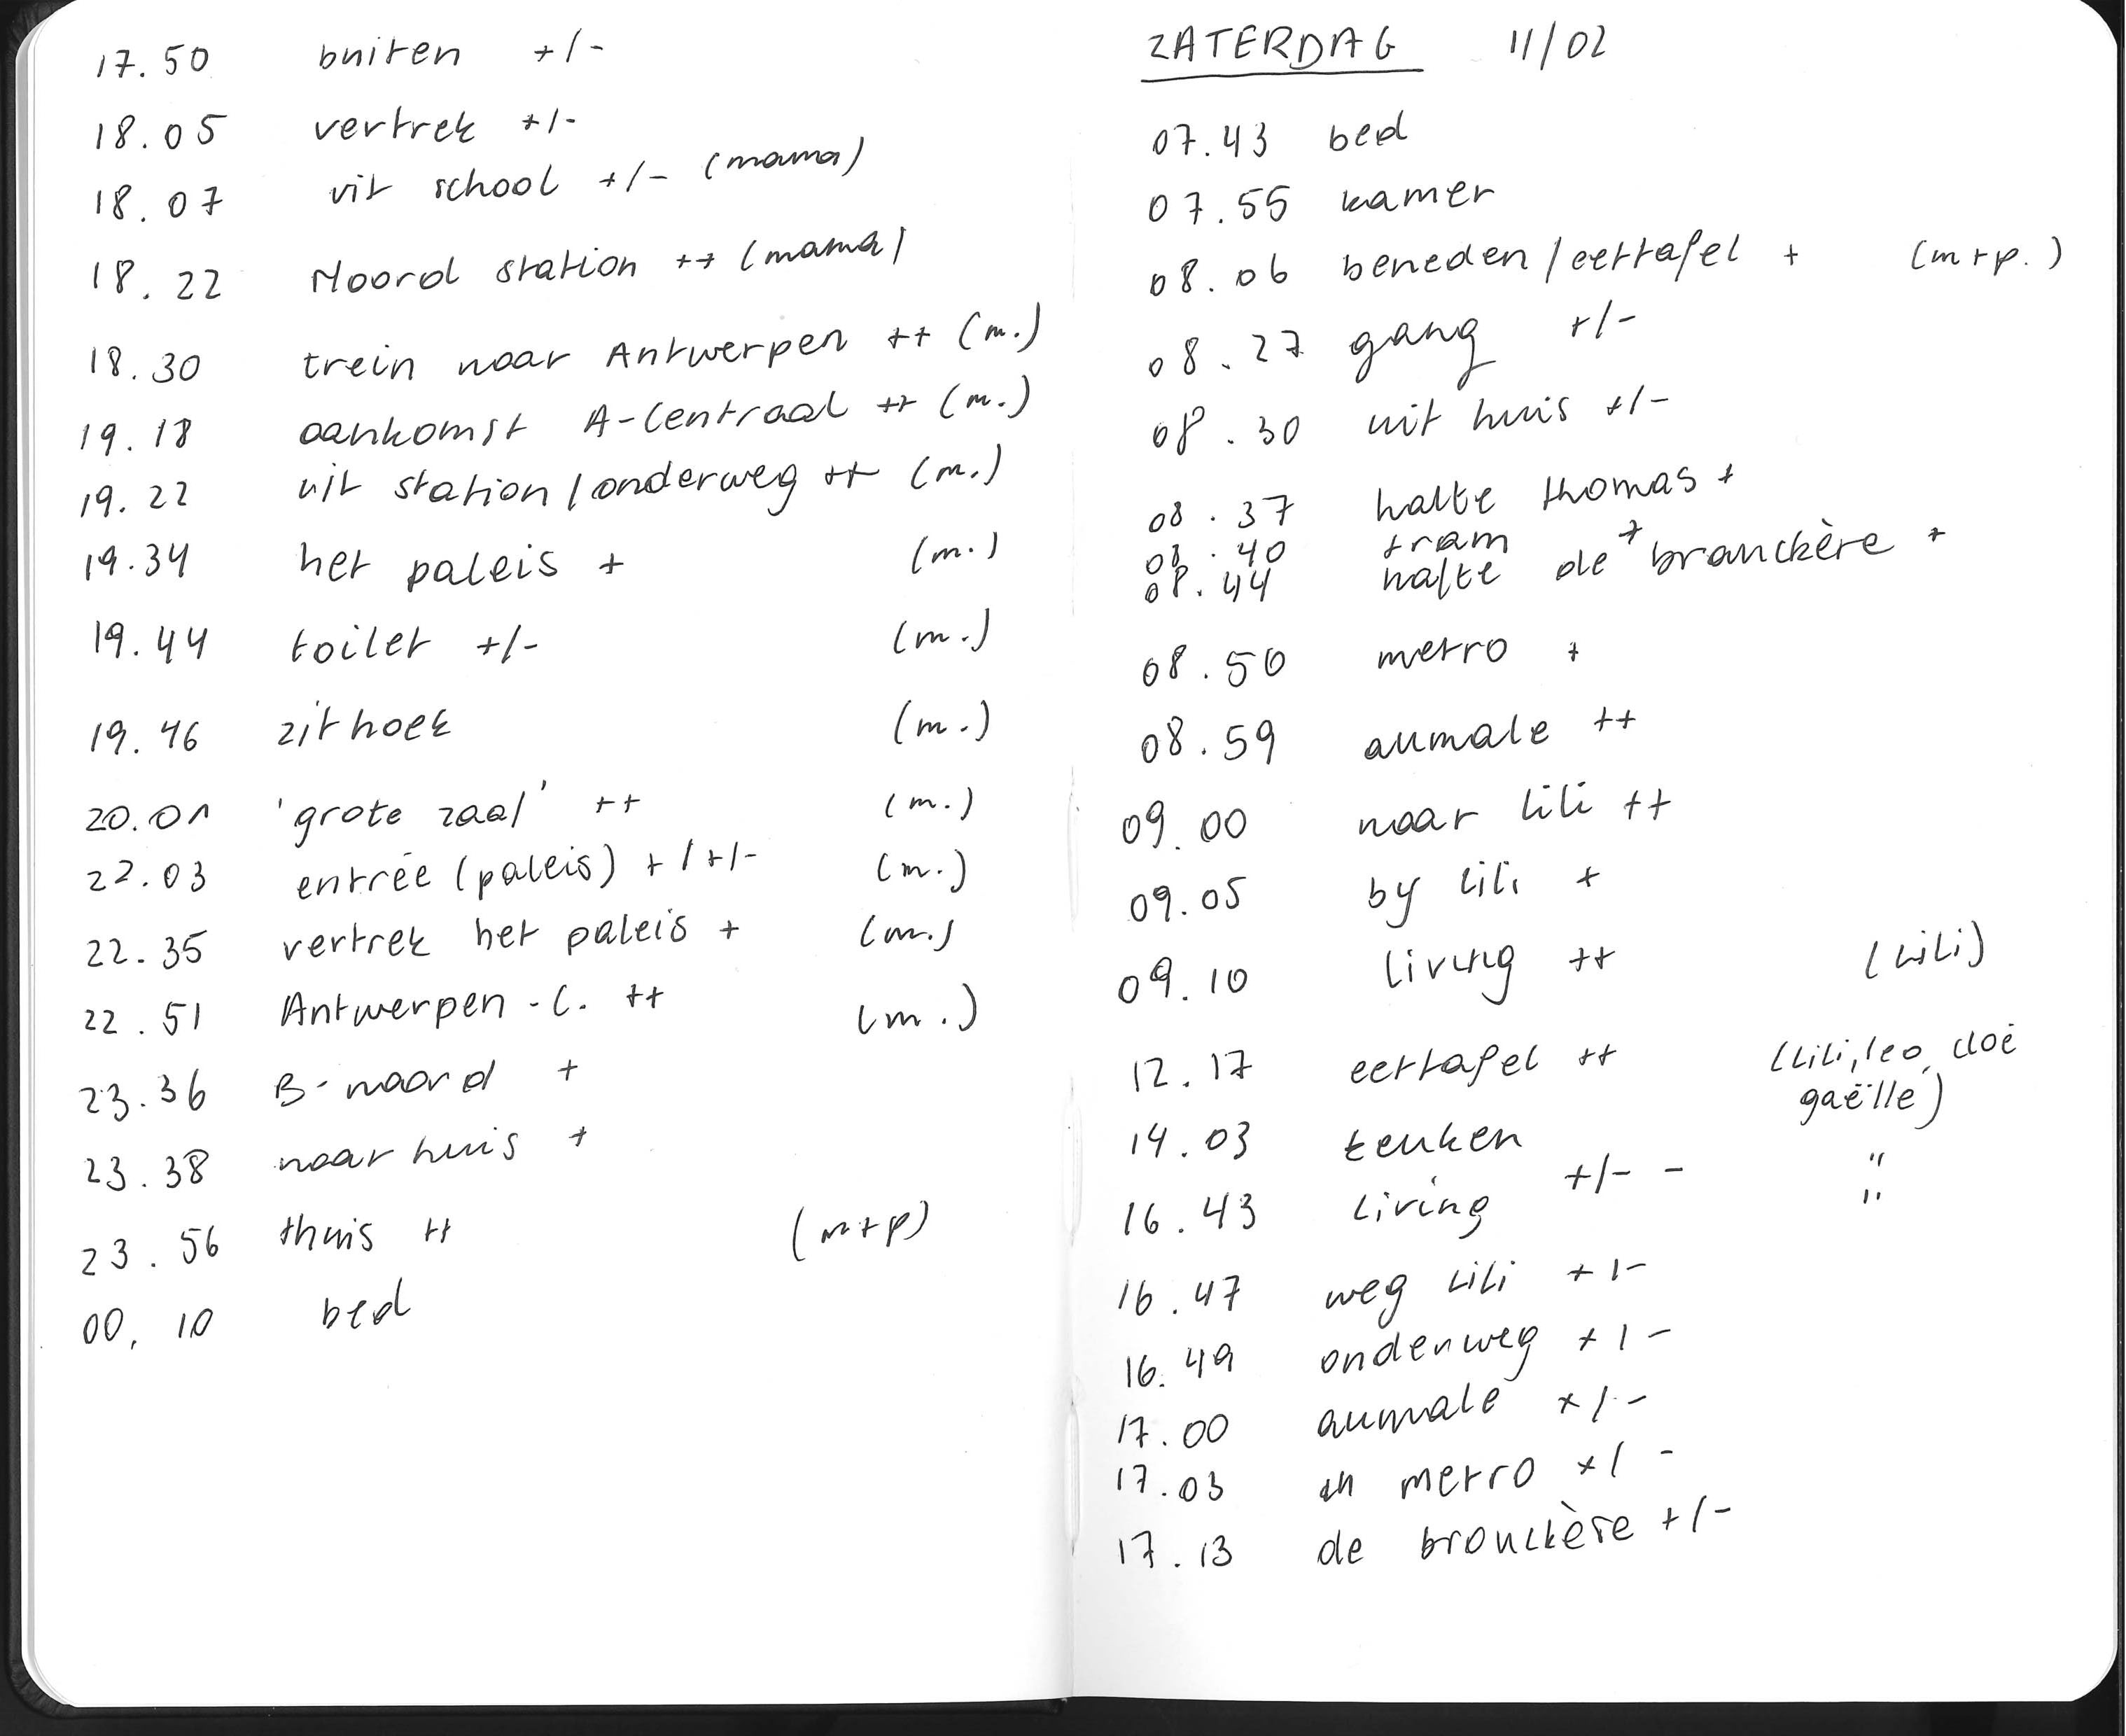 17.50 buiten +/-
18.05 vertrek +/-
18.07 uit school +/- (mama)
18.22 Noord station ++ (mama)
18.30 trein naar Antwerpen ++ (m.)
19.18 aankomst A-Centraal ++ (m.)
19.22 uit station/onderweg ++ (m.)
19.34 het paleis + (m.)
19.44 toilet +/- (m.)
19.46 zithoek (m.)
20.01 'grote zaal' ++ (m.)
22.03 entrée (paleis) + / +/- (m.)
22.35 vertrek het paleis + (m.)
22.51 Antwerpen-C. ++ (m.)
23.36 B-noord +
23.38 naar huis +
23.56 thuis ++ (m+p)
00.10 bed
ZATERDAG 11/02
07.43 bed
07.55 kamer
08.06 beneden/eettafel + (m+p.)
08.27 gang +/-
08.30 uit huis +/-
08.37 halte thomas +
08.40 tram +
08.44 halte de brouckère +
08.50 metro +
08.59 aumale ++
09.00 naar lili ++
09.05 by lili +
09.10 living ++ (lili)
12.17 eettafel ++ (lili, leo, cloé
gaëlle)
14.03 keuken +/- - "
16.43 living "
16.47 weg lili +/-
16.49 onderweg +/-
17.00 aumale +/-
17.03 in metro +/-
17.13 de brouckère +/-